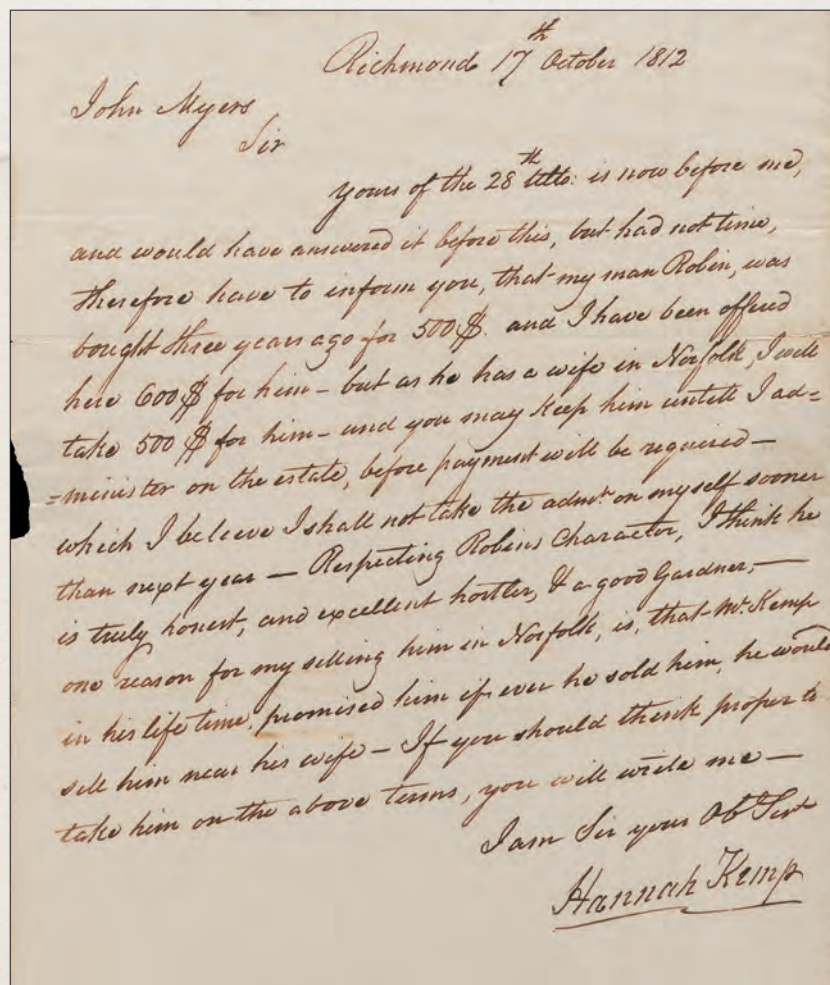 Richmond 17th October 1812
John Myers
Sir
yours of the 28th ulto: is now before me,
and would have answered it before this, but had not time,
therefore have to inform you, that my man Robin, was
bought three years ago for 500$. and I have been offered
here 600$ for him - but as he has a wife in Norfolk, I will
take 500$ for him - and you may keep him untill I ad=
=minister on the estate, before payment will be required -
which I beleeve I shall not take the admn. on myself sooner
than next year - Respecting Robins Character, I think he
is truly honest, and excellent hostler, & a good Gardner, -
one reason for my selling him in Norfolk, is, that Mr. Kemp
in his life time, promised him if ever he sold him, he would
sell him near his wife - If you should think proper to
take him on the above terms, you will write me -
I am Sir your Ob Sert
Hannah Kemp